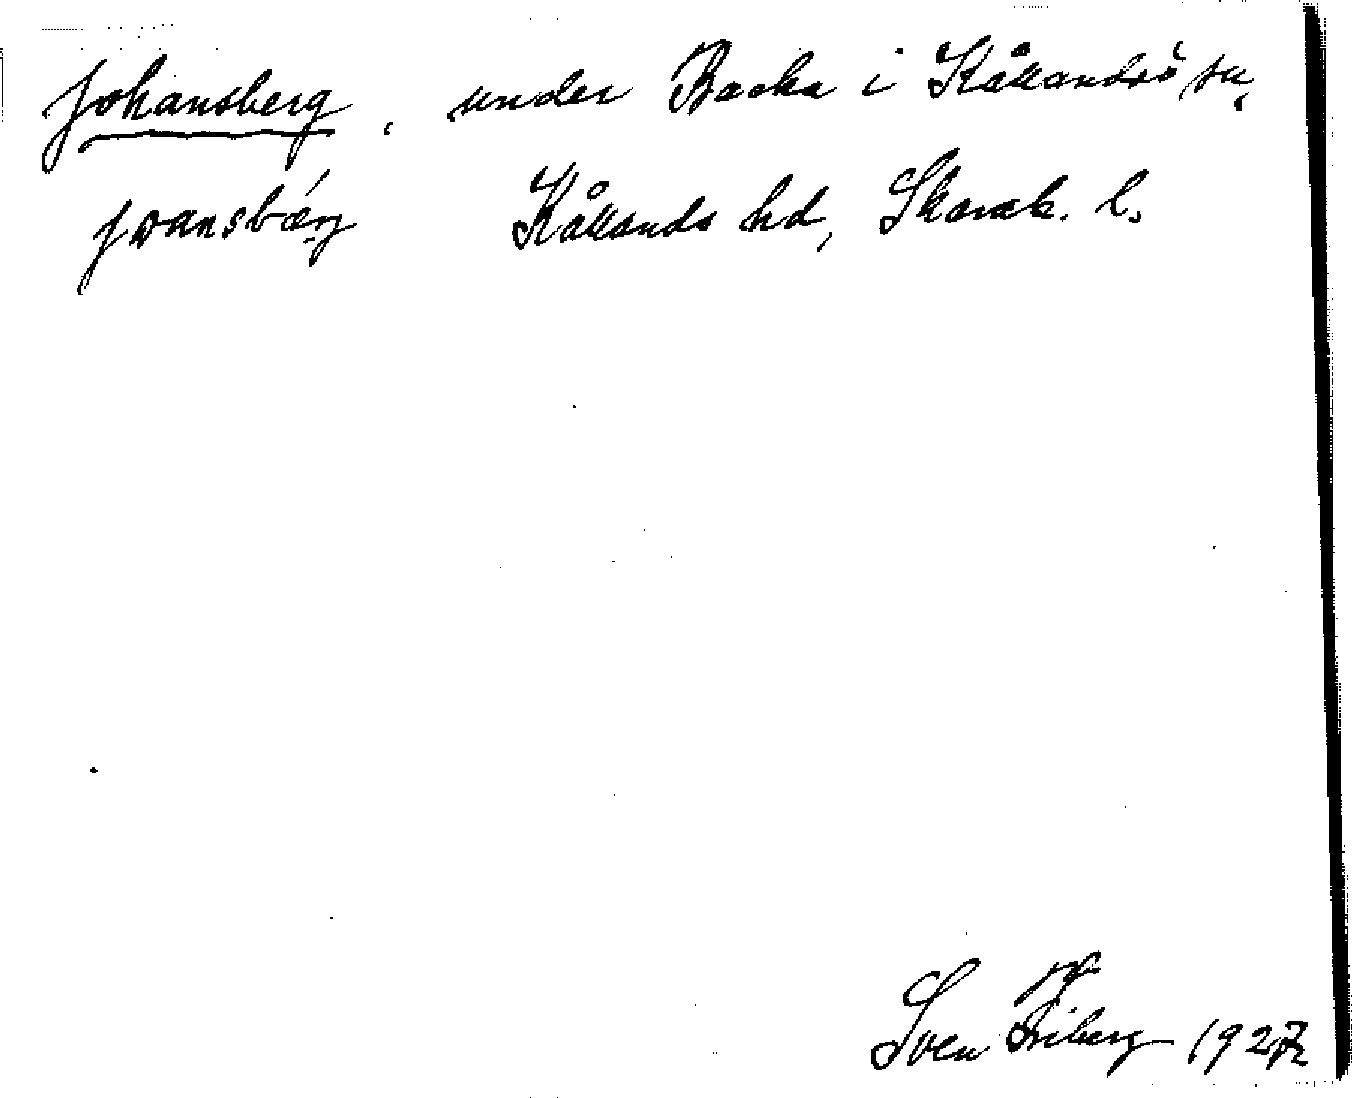 Johansberg, under Backa i Kållandsö sn,
joansbærj Kållands hd, Skarab. l.
Sven Friberg 1927